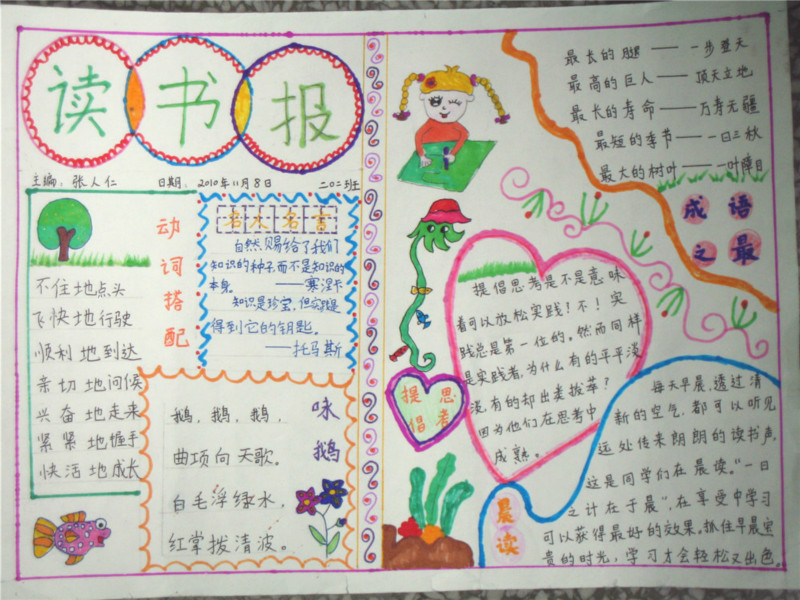 读书报
主编：张人仁 日期：2010年11月8日 二〇二班
动词搭配
不住地点头
飞快地行驶
顺利地到达
亲切地问候
兴奋地走来
紧紧地握手
快活地成长
名人名言
自然赐给了我们
知识的种子，而不是知识的
本身。——塞涅卡
知识是珍宝，但实践是
得到它的钥匙。
——托马斯
咏鹅
鹅，鹅，鹅，
曲项向天歌。
白毛浮绿水，
红掌拨清波。
最长的腿——一步登天
最高的巨人——顶天立地
最长的寿命——万寿无疆
最短的季节——一日三秋
最大的树叶——一叶障目
成语之最
提倡思考
提倡思考是不是意味
着可以放松实践？不！实
践总是第一位的。然而同样
是实践者，为什么有的平平淡
淡，有的却出类拔萃？
因为他们在思考中
成熟。
晨读
每天早晨，透过清
新的空气，都可以听见
远处传来朗朗的读书声，
这是同学们在晨读。“一日
之计在于晨”，在享受中学习
可以获得最好的效果。抓住早晨宝
贵的时光，学习才会轻松又出色。